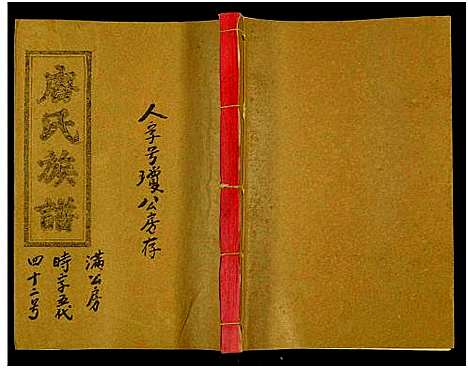 唐氏族譜
人字号瓊公房存
滿公房
時字五代
四十二号